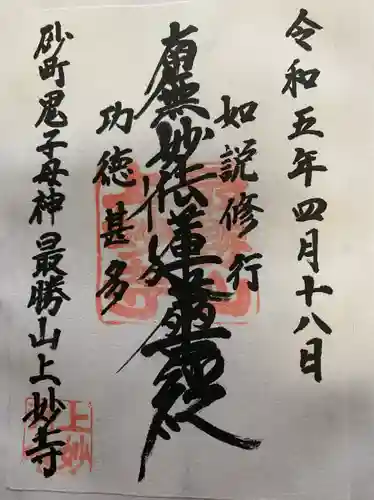 令和五年四月十八日
如説修行
南無妙法蓮華経
功徳甚多
砂町鬼子母神最勝山上妙寺
上妙